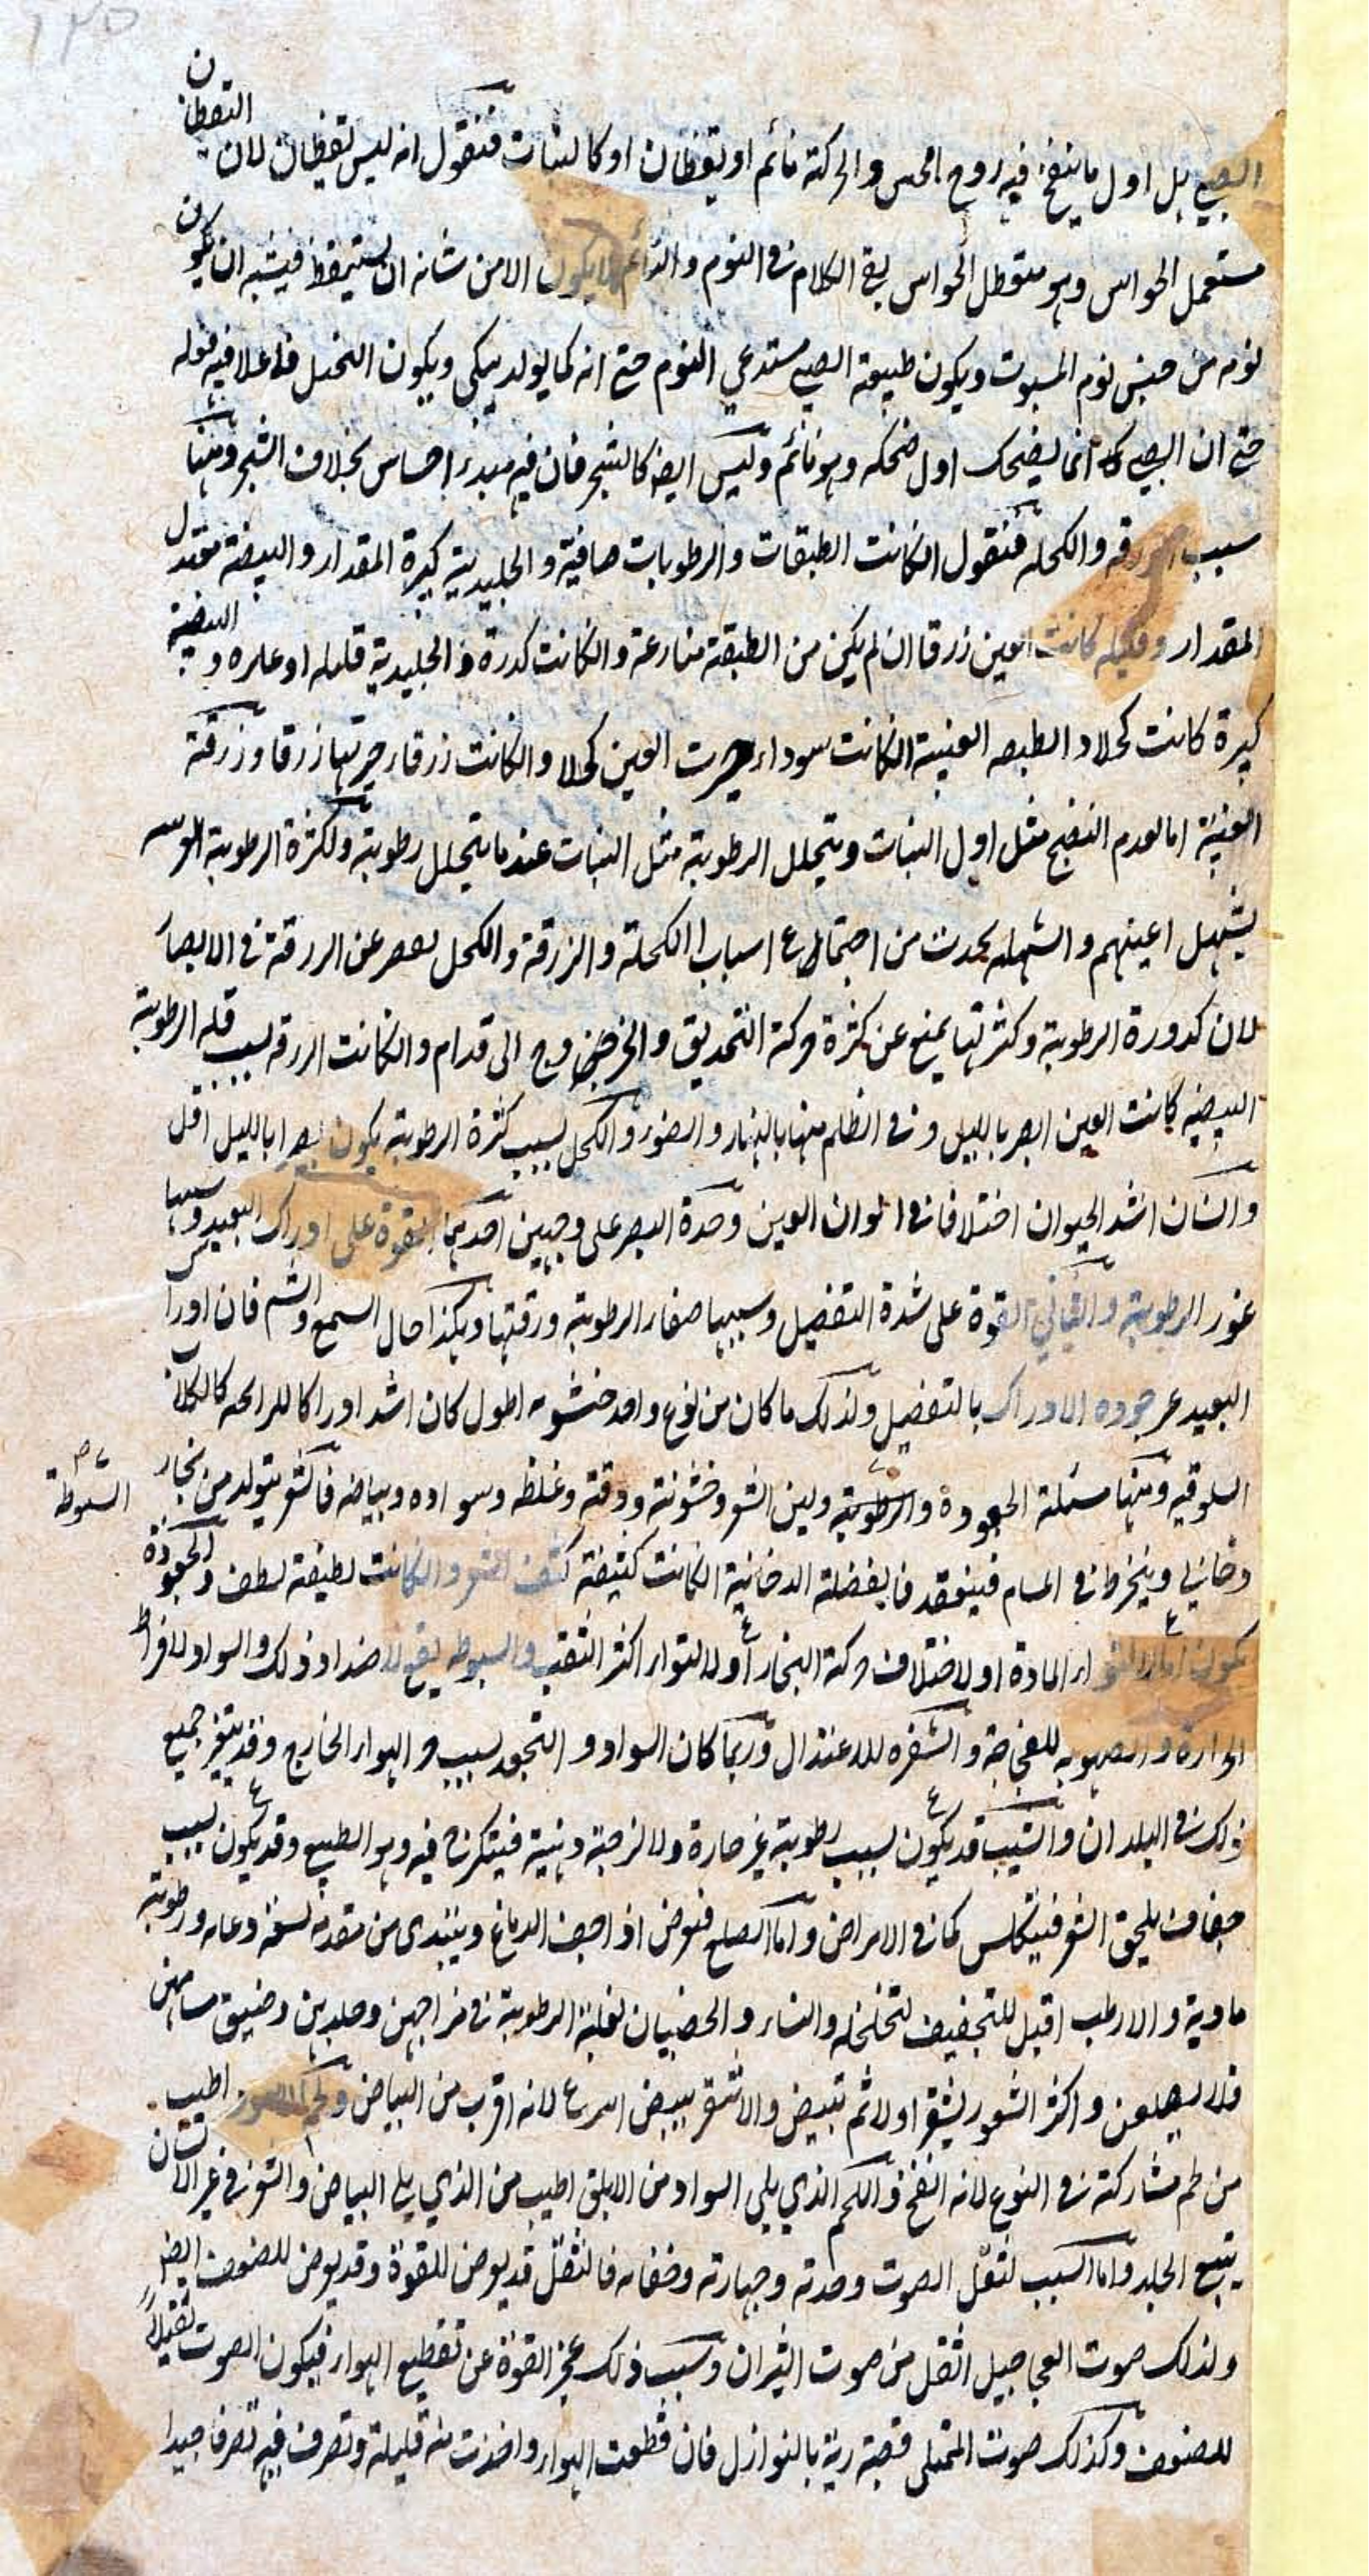 ١٢٥
الصبي بل اول ما ينفخ فيه روح الحس والحركة نائم او يقظان او كالنبات فنقول انه ليس يقظان لان اليقظان
مستعمل الحواس وهو متعطل الحواس بقي الكلام في النوم والنائم لا يكون الا من شانه ان يستيقظ فيشبه ان يكون
نومه من جنس نوم المسبوت ويكون طبيعة الصبي مستدعي النوم حتى انه كما يولد يبكي ويكون التخيل فاعلا فيه قوله
حتى ان الصبي انما يضحك اول ضحكه وهو نائم وليس ايضا كالشجر فان فيه مبدء احساس بخلاف الشجر ومنها
سبب الزرقه والكحله فنقول ان كانت الطبقات والرطوبات صافية والجليدية كبيرة المقدار والبيضة معتدل
المقدار وقليله كانت العين زرقا ان لم يكن من الطبقة منازعة وان كانت كدرة و الجليدية قليله او غايره والبيضية
كبيرة كانت كحلا و الطبقه العنبية ان كانت سوداء صيرت العين كحلا وان كانت زرقا صيرتها زرقا وزرقة
العنبية اما لعدم النضج مثل اول النبات وبتحلل الرطوبة مثل النبات عند ما يتحلل رطوبته ولكثرة الرطوبة
يشهل اعينهم والشهله يحدث من اجتماع اسباب الكحلة والزرقة والكحل يقصر عن الزرقة في الابصار
لان كدورة الرطوبة وكثرتها يمنع عن كثرة حركة التحديق والخروج الى قدام وان كانت الزرقه لسبب قله الرطوبة
البيضيه كانت العين ابصر بالليل و في الظلم منها بالنهار والضوء والكحل بسبب كثرة الرطوبة يكون بصرها بالليل اقل
وانسان اشد الحيوان اختلافا في الوان العين وحدة البصر على وجهين احديهما القوة على ادراك البعيد وسببها
غور الرطوبة والثاني القوة على شدة التفصيل وسببها صفاء الرطوبة ورقتها وهكذا حال السمع والشم فان ادراك
البعيد غير جوده الادراك بالتفصيل ولذلك ما كان من نوع واحد خيشومه اطول كان اشد ادراكا للرايحه كالكلاب
السلوقيه ومنها مسئلة الجعودة والرطوبة ولين الشعر وخشونته ودقته وغلظه وسواده وبياضه فالشعر يتولد من بخار
السبوطة
دخاني وينخرط في المسام فينعقد فالفضلة الدخانية ان كانت كثيفة كثف الشعر وان كانت لطيفة لطف والجعودة
تكون اما لالتواء المادة او لاختلاف حركة البخار او لالتواء اكثر الثقب والسبوطه يقع لاضداد ذلك والسواد لافراط
الحرارة والصهوبه للفجاجة والشقره للاعتدال وربما كان السواد و التجعد بسبب حر الهواء الخارج وقد يتغير جميع
ذلك في البلدان والشيب قد يكون بسبب رطوبة غير حارة ولا لزجة دهنية فيتكرج فيه وهو الطبيعي وقد يكون بسبب
جفاف يلحق الشعر فيتكلس كما في الامراض واما الصلع فيعرض اذا جف الدماغ ويبتدى من مقدمه ورطوبته
ماوية والارطب اقبل للتجفيف لتخلخله والنساء والخصيان لغلبة الرطوبة في مزاجهن وجلدهن وضيق مسامهن
فلا يصلعن واكثر الشعور يشقر اولا ثم تبيض والاشقر يبيض اسرع لانه اقرب من البياض ولحم اطيب
من لحم مشاركته في النوع لانه انضج واللحم الذي يلي السواد من الابلق اطيب من الذي يلي البياض والشعر في غير الانسان
يتبع الجلد واما السبب لثقل الصوت وحدته وجهارته وخفائه فالثقل قد يعرض للقوة وقد يعرض للضعف ايضا
ولذلك صوت العجاجيل اثقل من صوت الثيران وسبب ذلك عجز القوة عن تقطيع الهواء فيكون الصوت ثقيلا
للضعف وكذلك صوت الممتلى قصبة ريته بالنوازل فان قطعت الهواء واخذت منه قليلة وتصرف فيه تصرفا جيدا